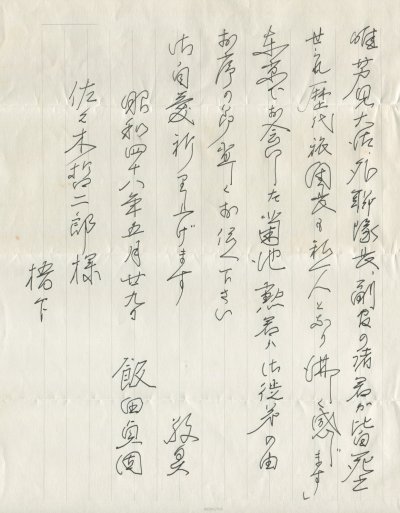 唯芳児大活、尓聯隊長、副官の諸君が皆死亡
せられ歴代旅団長も私一人となり沸感じます」
東京でお会いした菊池勲君ハ御従弟の由
お序の節宜しくお伝え下さい
御自愛祈り上げます
敬具
昭和四十八年五月廿九日
飯田貞固
佐々木哲二郎様
梧下